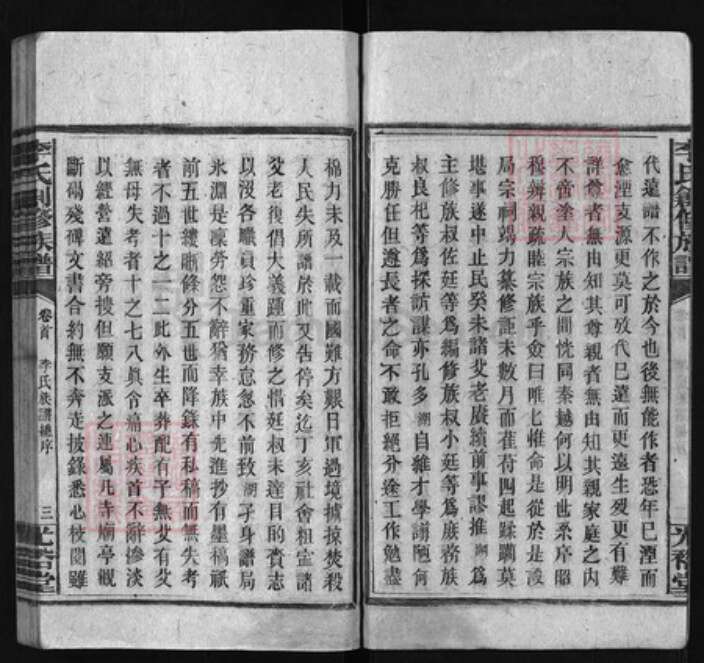 代遠譜不作之於今也後無能作者恐年已湮而
愈湮支源更莫可攷代已遠而更遠生歿更有難
詳尊者無由知其尊親者無由知其親家庭之內
不啻塗人宗族之間恍同秦越何以明世系序昭
穆辨親疏睦宗族乎僉曰唯七惟命是從於是設
局宗祠竭力纂修詎未數月而萑苻四起蹂躪莫
堪事遂中止民癸未諸父老賡續前事謬推湖為
主修族叔佐廷等爲編修族叔小廷等爲庶務族
叔良杞等爲採訪謀亦孔多湖自維才學譾陋何
克勝任但遵長者之命不敢拒絕分途工作勉盡
棉力未及一載而國難方艱日軍過境擄掠焚殺
人民失所譜於此又告停矣迄丁亥社會粗宣諸
父老復倡大義踵而修之惜廷叔未達目的賫志
以沒各職員珍重家務怠忽不前致湖孑身譜局
氷淵是凜勞怨不辭猶幸族中先進抄有墨稿祇
前五世縷晰條分五世而降錄有私稿而無失考
者不過十之一二此外生卒葬配有子無父有父
無母失考者十之七八眞令痛心疾首不辭慘淡
以經營遠紹旁搜但願支派之連屬凡寺廟亭觀
斷碣殘碑文書合約無不奔走披錄悉心校閱雖
李氏創修族譜
卷首
李氏族譜總序
三